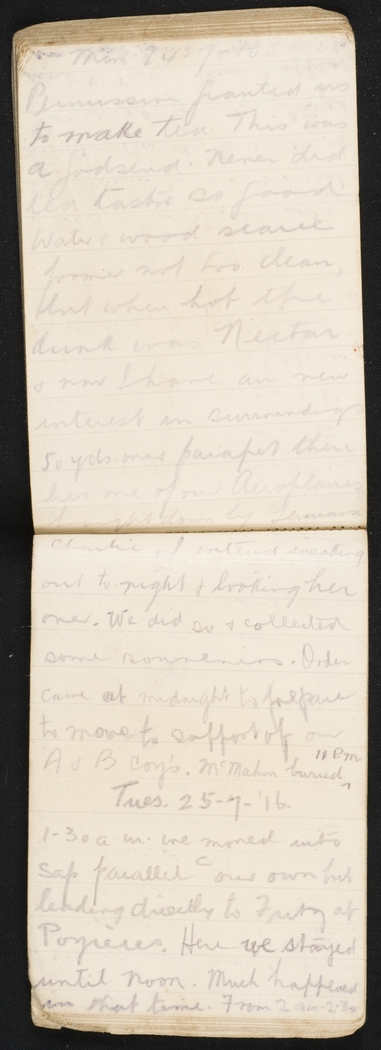 Mon 24-7-16
Permission granted us
to make tea. This was
a godsend. Never did
tea taste so good
Water & wood scarce
former not too clean,
but when hot the
drink was Nectar
& now I have an new
interest in surroundings
50 yds over parapet there
lies one of our Aeroplanes
brought down by Germans
Charlie & I intend sneaking
out to night & looking her
over. We did so & collected
some souvenirs. Order
came at midnight to prepare
to move to support of our
A & B Coy's. McMahon buried 11 P.m
Tues. 25-7-'16.
1-30 a.m. we moved into
sap parallel c our own but
leading directly to Fritz at
Pozieres. Here we stayed
until noon. Much happened
in that time. From 2 am-2-30